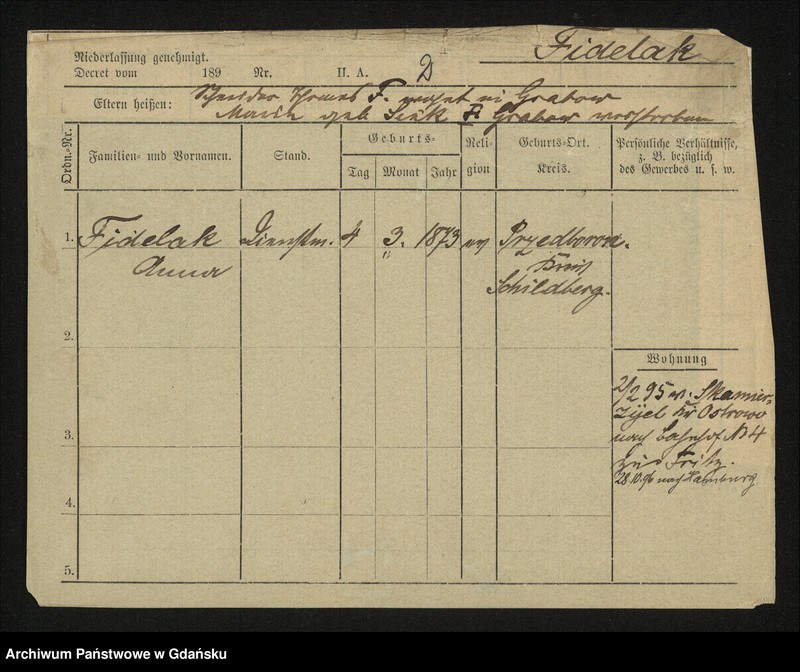 Fidelak
Niederlassung genehmigt.
Decret vom 189 Nr. II. A. D
Eltern heißen: Schneider Thomas F. wohnt in Grabow
Maria geb. F. Grabow verstorben
Ordn.-Nr. Familien- und Vornamen. Stand. Geburts- Reli-gion Geburts-Ort. Kreis. Persönliche Verhältnisse, z. B. bezüglich des Gewerbes u. s. w.
Tag Monat Jahr
1. Fidelak Dienstm. 4 3. 1873 ev Przedborow.
Anna Kreis
Schildberg.
2.
Wohnung
2/2 95 v. Skamier-
zyce Kr Ostrowo
nach Bahnhof No 4
3.
bei Fritz.
28.10.96 nach Hamburg
4.
5.
Archiwum Państwowe w Gdańsku